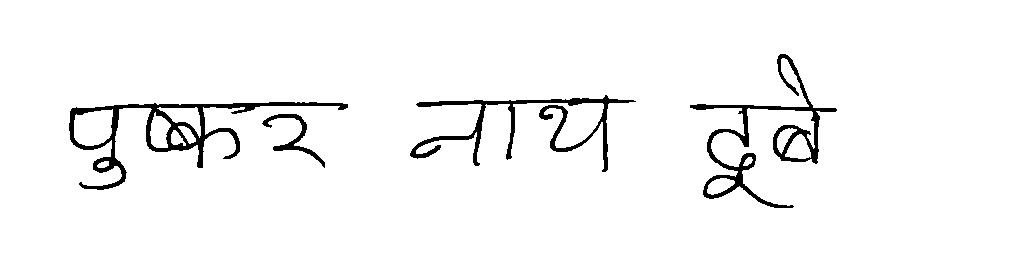 पुष्कर नाथ दूबे